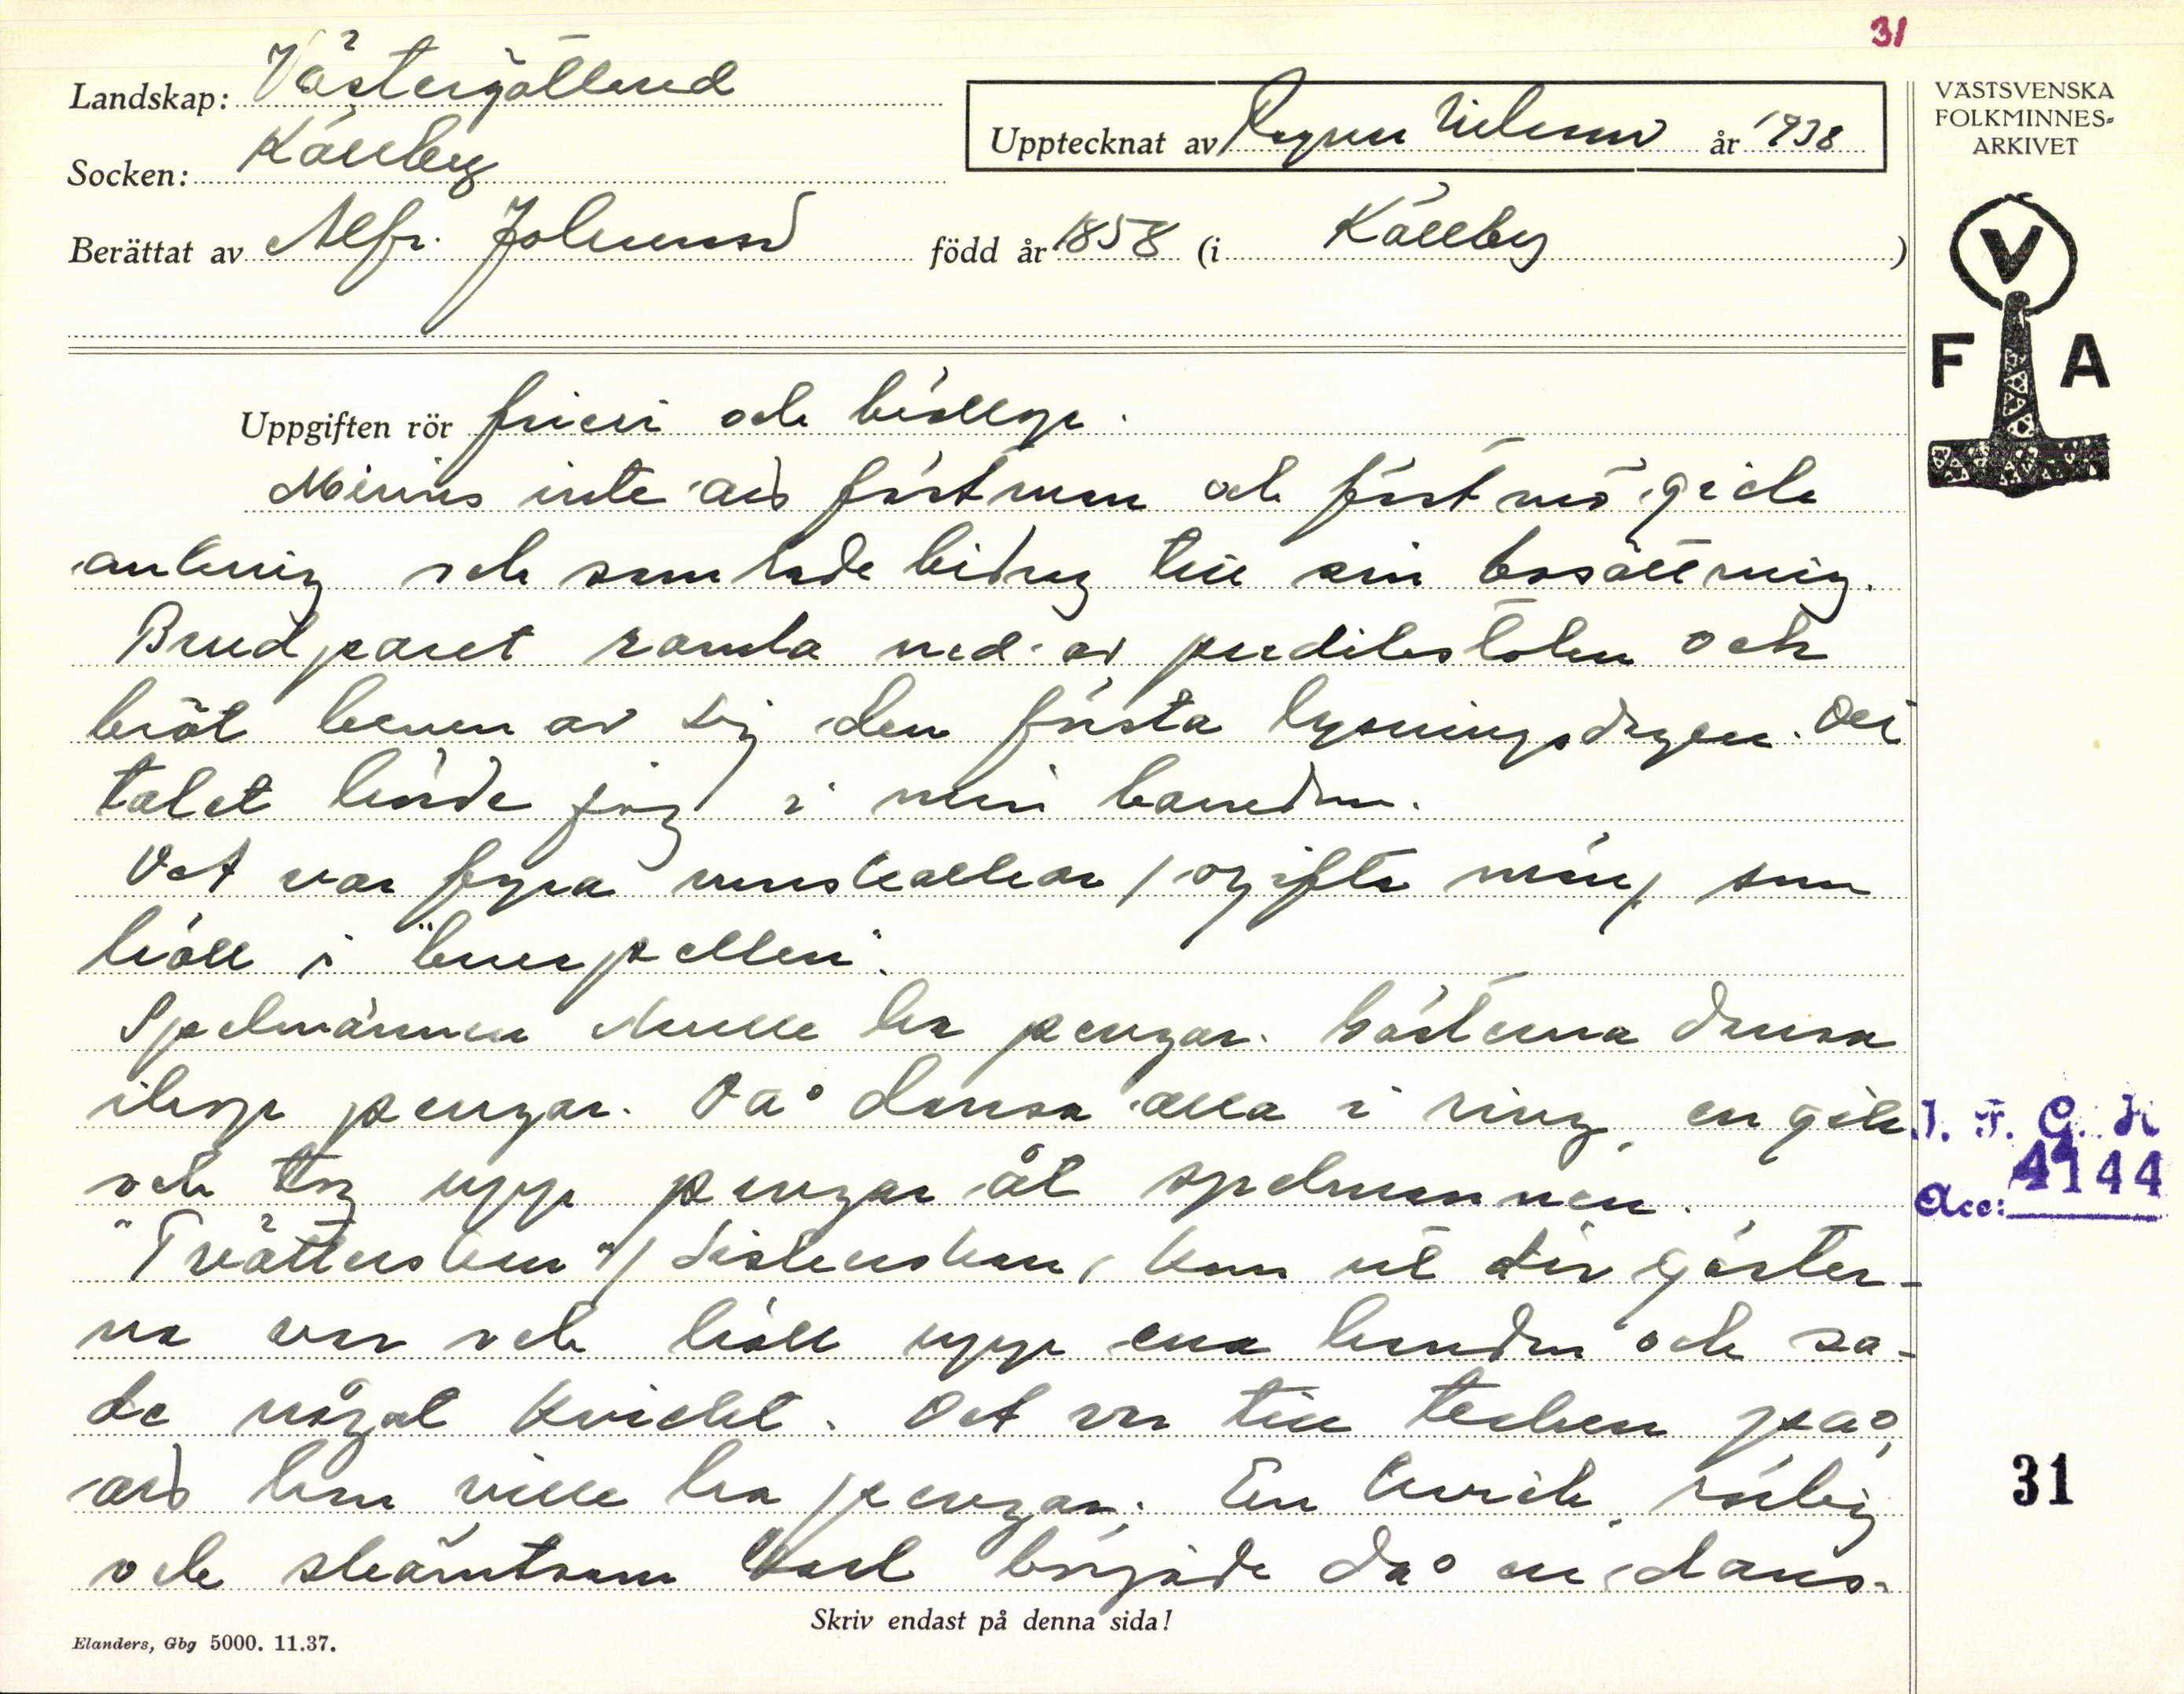 31
Landskap: Västergötland
Socken: Källby
Upptecknat av Ragnar Nilsson år 1938
Berättat av Alfr. Johansson född år 1858 (i Källby)
VÄSTSVENSKA
FOLKMINNES-
ARKIVET
V
F A
Uppgiften rör frieri och bröllop.
Minns inte att fästman och fästmö gick
omkring och samlade bidrag till sin bosättning.
Brudparet ramla ned av predikstolen och
bröt benen av sig den första lysningsdagen. Det
talet hörde jag i min barndom.
Det var fyra ungkarlar /ogifta män/ som
höll i "brupellen".
Spelmännen skulle ha pengar. Gästerna dansa
ihop pengar. Då dansa alla i ring, en gick
och tog upp pengar åt spelmannen.
"Tvätterskan" /diskerskan/ kom ut där gäster-
na var och höll upp ena handen och sa-
de något kvickt. Det var till tecken på,
att hon ville ha pengar. En kvick, rolig
och skämtsam karl började då en dans-
I. F. G. H
Acc: 4144
31
Skriv endast på denna sida!
Elanders, Gbg 5000. 11.37.